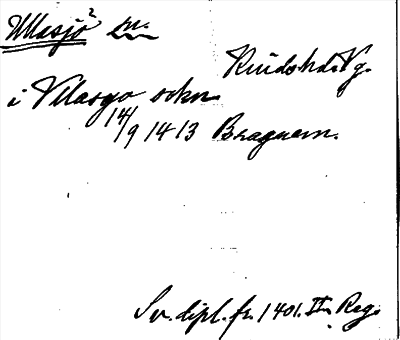 Ullasjö² sn.
Kinds hd. Vg.
i Vllasyo sokn
14/9 1413 Braguem.
Sv. dipl. fr. 1401. II. Reg.